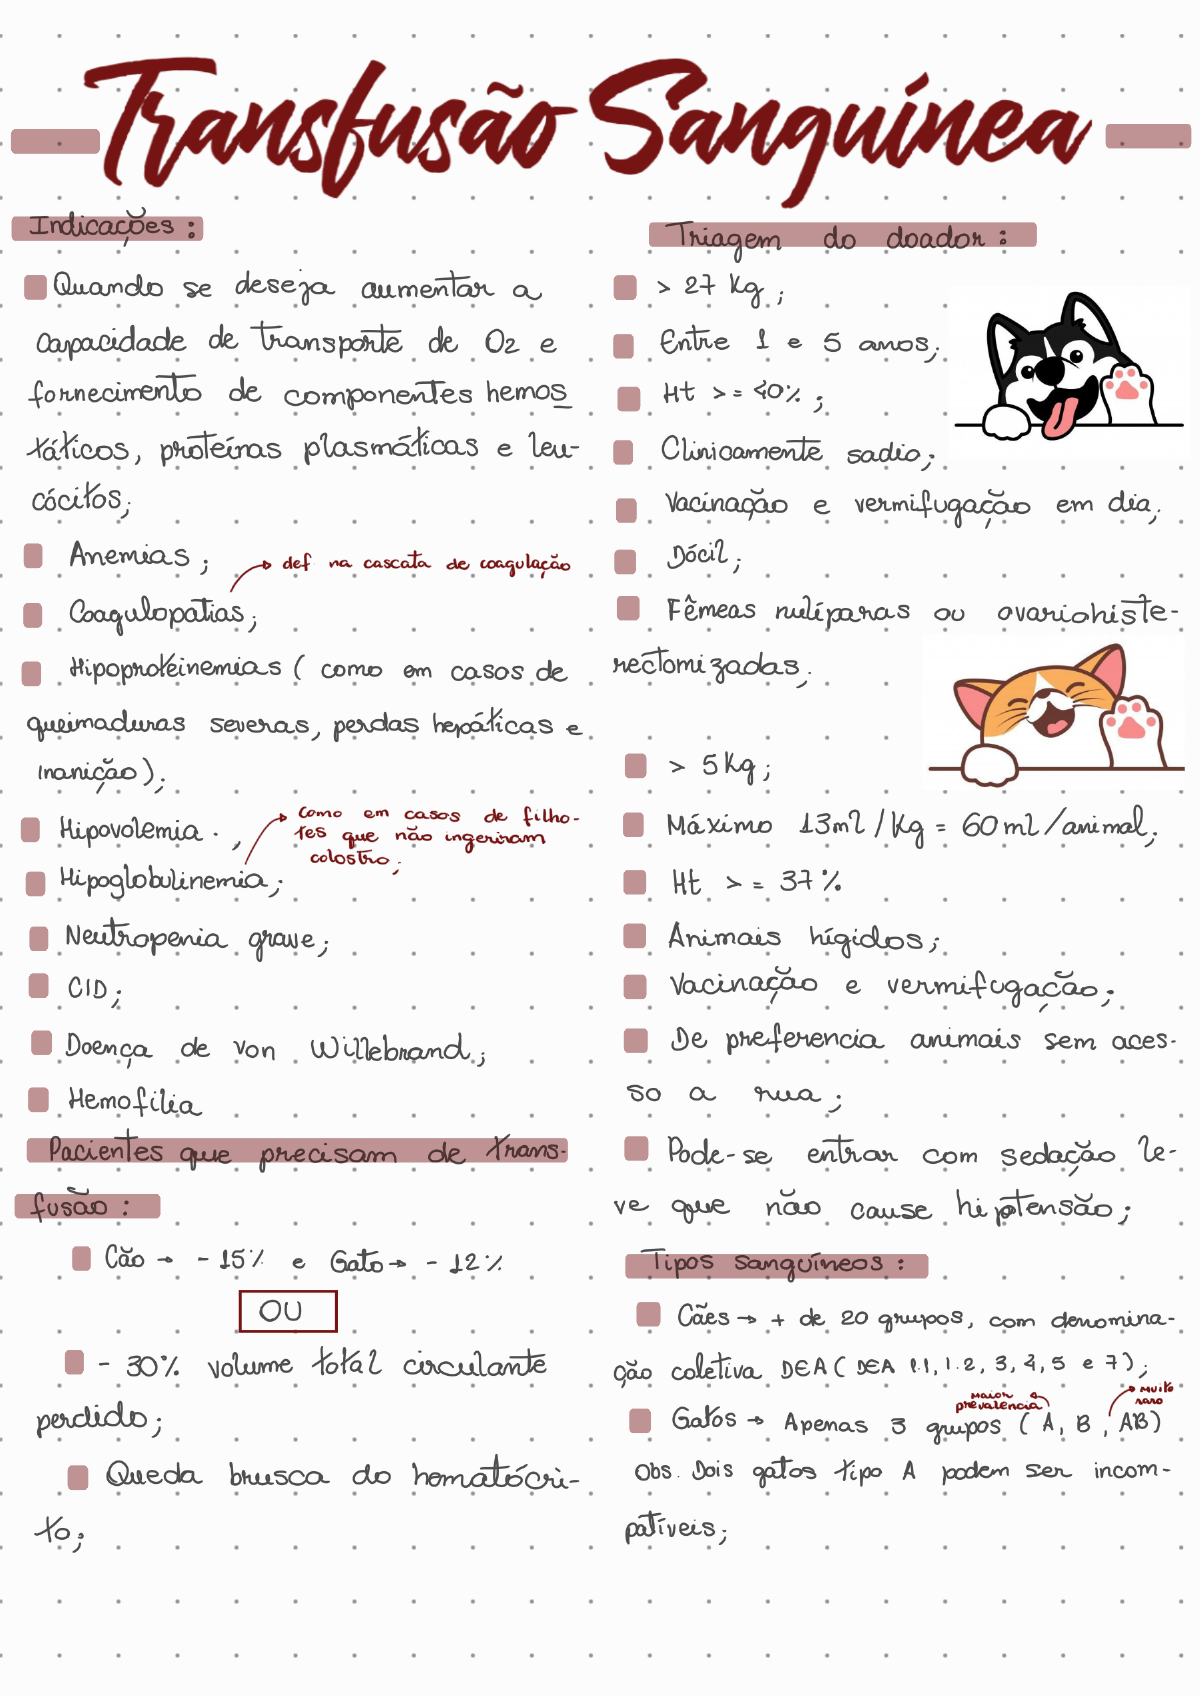 Transfusão Sanguínea
Indicações:
Quando se deseja aumentar a
capacidade de transporte de O2 e
fornecimento de componentes hemos
táticos, proteínas plasmáticas e leu-
cócitos;
Anemias;
def na cascata de coagulação
Coagulopatias;
Hipoproteinemias (como em casos de
queimaduras severas, perdas hepáticas e
inanição);
Hipovolemia;
como em casos de filho-
tes que não ingeriram
colostro;
Hipoglobulinemia;
Neutropenia grave;
CID;
Doença de von Willebrand;
Hemofilia
Pacientes que precisam de trans-
fusão:
Cão → - 15% e Gato → - 12%
OU
- 30% volume total circulante
perdido;
Queda brusca do hematócri-
to;
Triagem do doador:
> 27 Kg;
Entre 1 e 5 anos;
Ht >= 40%;
Clinicamente sadio;
Vacinação e vermifugação em dia;
Dócil;
Fêmeas nulíparas ou ovariohiste-
rectomizadas;
> 5 Kg;
Máximo 13ml/Kg = 60 ml/animal;
Ht >= 37%
Animais hígidos;
Vacinação e vermifugação;
De preferencia animais sem aces-
so a rua;
Pode-se entrar com sedação le-
ve que não cause hiptensão;
Tipos sanguíneos:
Cães → + de 20 grupos, com denomina-
ção coletiva DEA (DEA 1.1, 1.2, 3, 4, 5 e 7);
maior prevalencia
muito raro
Gatos → Apenas 3 grupos (A, B, AB)
Obs. Dois gatos tipo A podem ser incom-
patíveis;